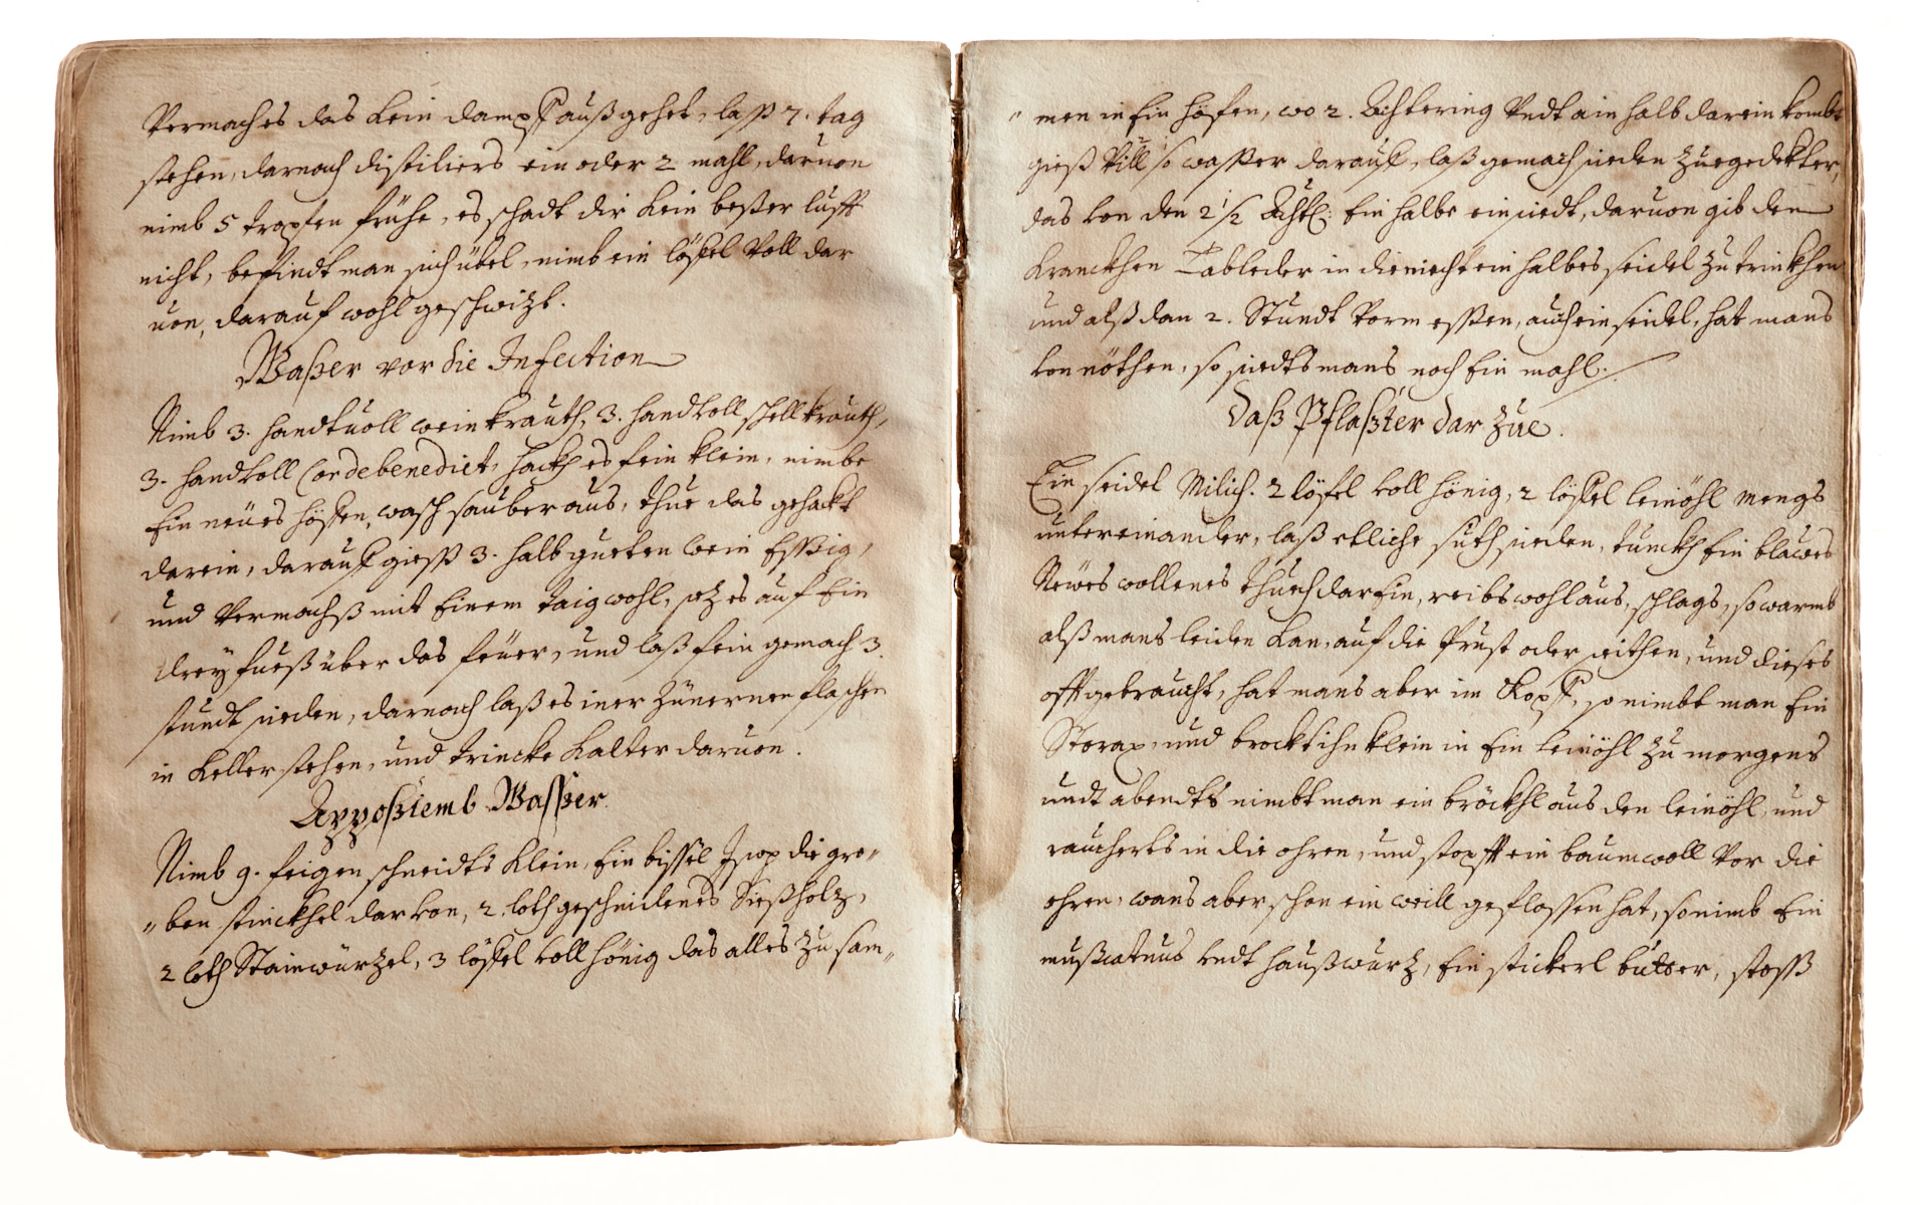 Vermach es das kein dampff außgehet, laß 7. tag
stehen, darnach distiliers ein oder 2 mahl, daruon
nimb 5 tropfen frühe, es schadt dir kein beßer lufft
nicht, befindt man sich übel, nimb ein löffel voll dar
uon, darauf wohl geschwizt.
Waßer vor die Infection
Nimb 3. handtuoll weinkrauth, 3. handvoll schellkrauth,
3. handvoll Cordebenedict, hackh es fein klein, nimbe
Ein neües häffen, wasch sauber aus, thue das gehackt
darein, darauf gieß 3. halb gueten wein Eßßig,
und vermachß mit Einem taig wohl, sez es auf Ein
drey fueß über das feüer, und laß fein gemach 3.
stundt sieden, darnach laß es in er zünernen flaschen
in Keller stehen, und trincke kalter daruon.
Appostemb Wasser
Nimb 9. feigen schneidts klein, Ein bissel Isop die gro„
„ben stinckhel darvon, 2. loth geschnidenes Sießholz,
2 loth Stainwurzel, 3 löffel voll hönig das alles zu sam„
„men in Ein häfen, wo 2. Achtering vndt ain halb darein kombt
gieß vill so wasser darauf, laß gemach sieden zuegedekter,
das von den 2 1/2 Acht: Ein halbe einsiedt, daruon gib den
Kranckhen in die niecht ein halbes seidel zu trinkhen
und alß dan 2. Stundt vorm essen, auch ein seidel, hat mans
von nöthen, so siedts mans noch Ein mahl.
Daß Pflaßter dar zue.
Ein seidel Milich. 2 löfel voll hönig, 2 löffel leinöhl mengs
untereinander, laß etliche suth sieden, tunckh Ein blawes
Newes wollenes thuch darEin, reibs wohl aus, schlags, so warmb
alß mans leiden kan, auf die Prust oder seithen, und dieses
offt gebraucht, hat mans aber im Kopff, so nimbt man Ein
Storax, und brockt ihn klein in Ein leinöhl zu morgens
undt abendts nimbt man ein bröckhl aus den leinöhl, und
raucherts in die ohren, und stopfft ein baumwoll vor die
ohren, wans aber schon ein weill geflossen hat, so nimb Ein
mußcatnus vndt haußwurz, Ein stickerl butter, stoss